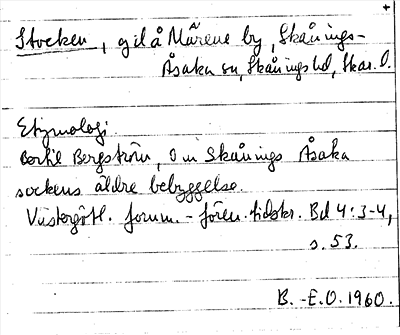 +
Stocken, gd å Mårene by, Skånings-
Åsaka sn, Skånings hd, Skar. l.
Etymologi.
Bertil Bergström, Om Skånings Åsaka
sockens äldre bebyggelse.
Västergötl. fornm.-fören. tidskr. Bd 4:3-4,
s. 53.
B.-E.O. 1960.